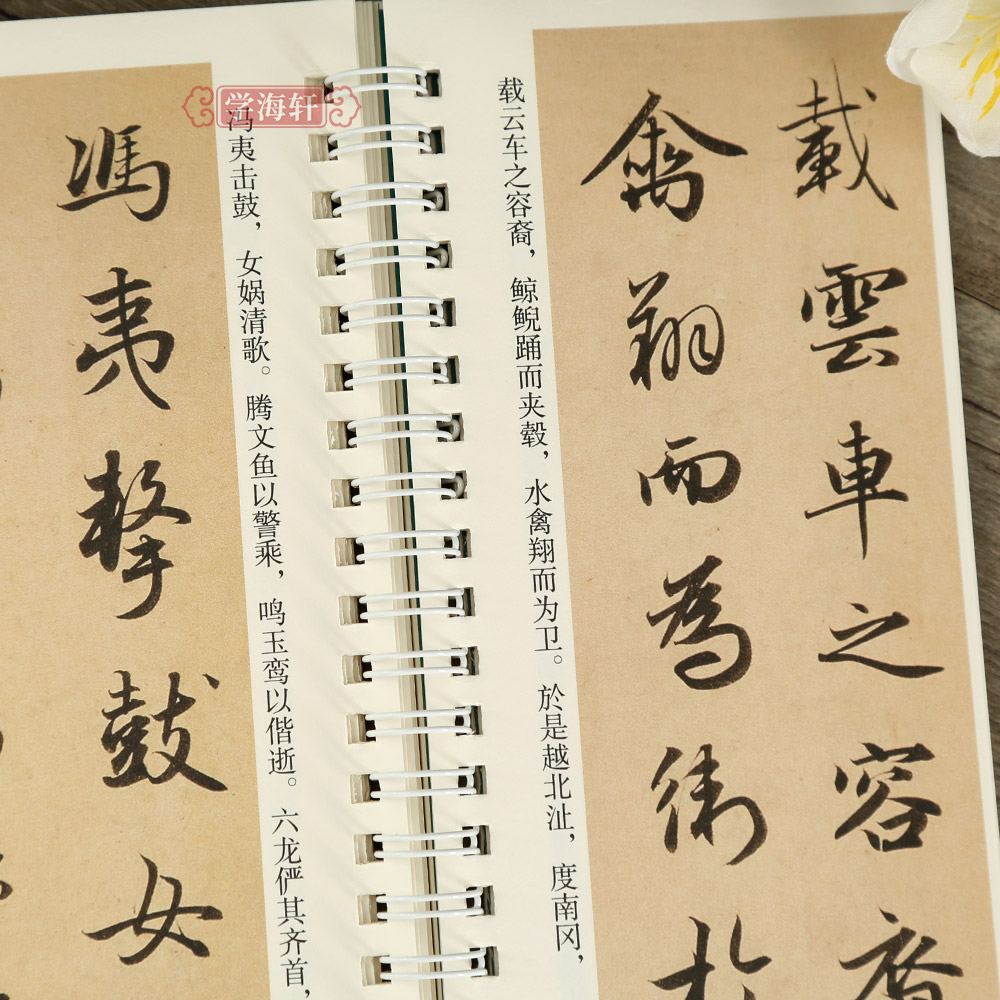 学海轩
冯夷击鼓，女娲清歌。腾文鱼以警乘，鸣玉鸾以偕逝。六龙俨其齐首，
馮夷擊鼓女
載雲車之容裔
禽翔而為衛於
载云车之容裔，鲸鲵踊而夹毂，水禽翔而为卫。於是越北沚，度南冈，